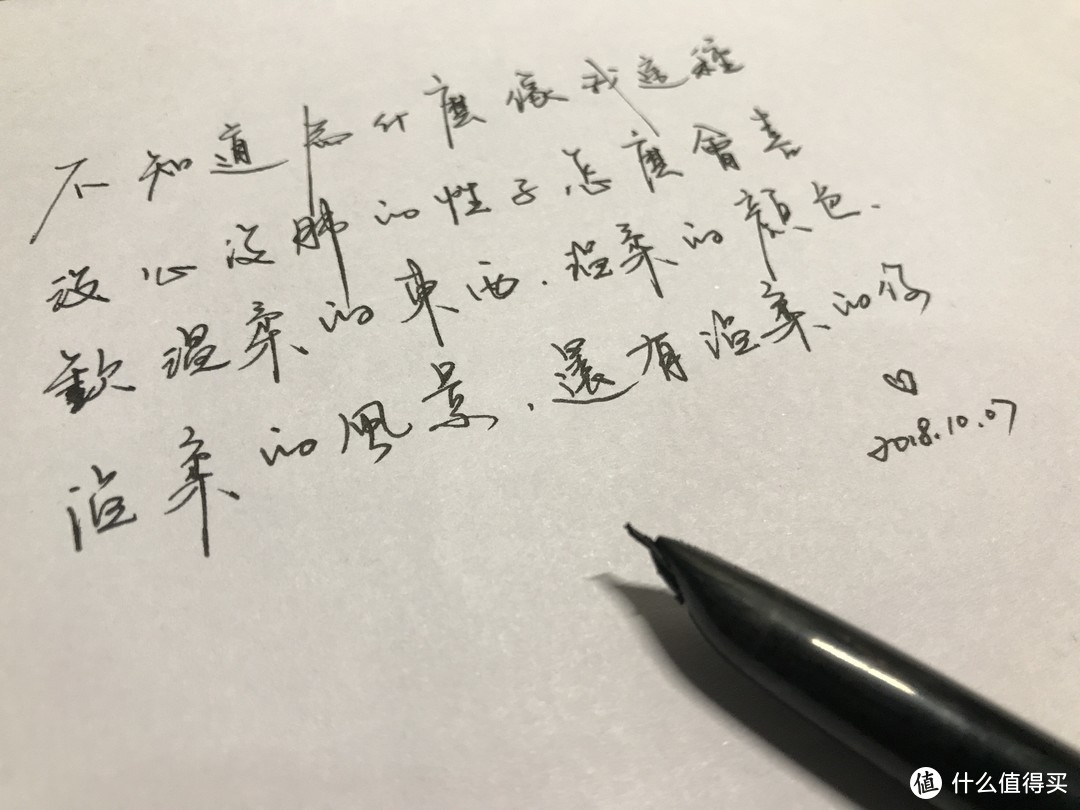 不知道為什麼像我這種
沒心沒肺的性子怎麼會喜
歡溫柔的東西.溫柔的顏色.
溫柔的風景.還有溫柔的你
♡
2018.10.07
值 什么值得买